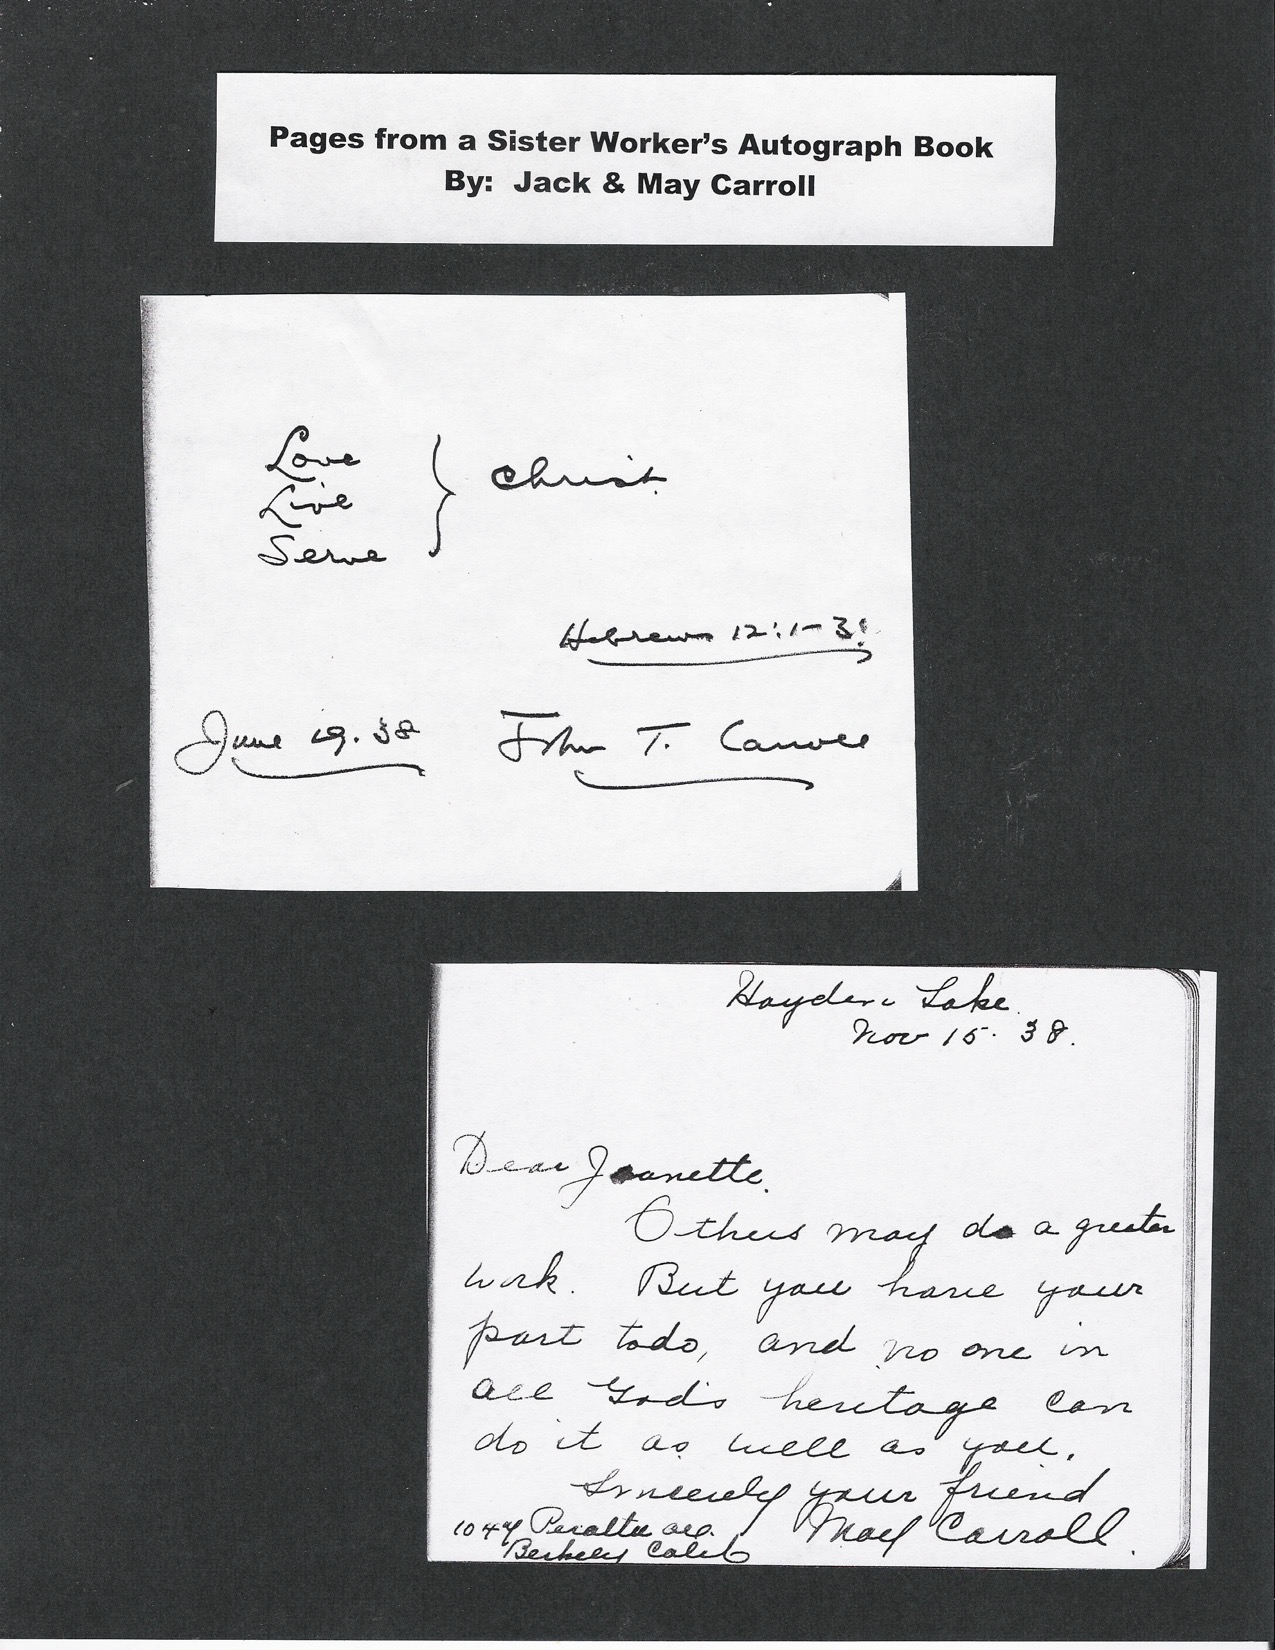 Pages from a Sister Worker's Autograph Book
By: Jack & May Carroll
Love
Live
Serve
} Christ.
Hebrews 12:1-3!
June 19. 38 John T. Carroll
Hayden Lake.
Nov 15. 38.
Dear Jeanette.
Others may do a greater
work. But you have your
part to do, and no one in
all God's heritage can
do it as well as you.
Sincerely your friend
May Carroll.
1044 Peralta ave.
Berkely Calif